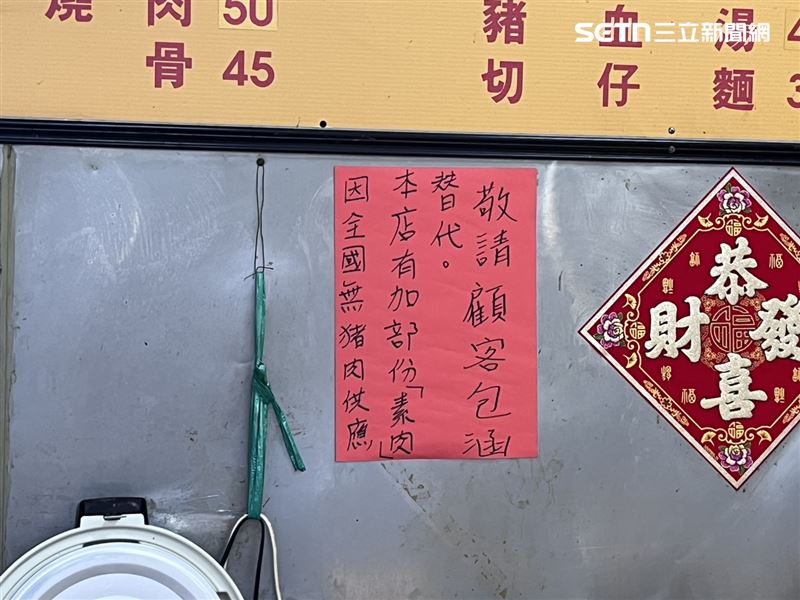 燒肉 50
骨 45
豬血湯
切仔麵
SETN三立新聞網
因全國無猪肉供應
本店有加部份「素肉」
替代。
敬請顧客包涵
恭喜
發財